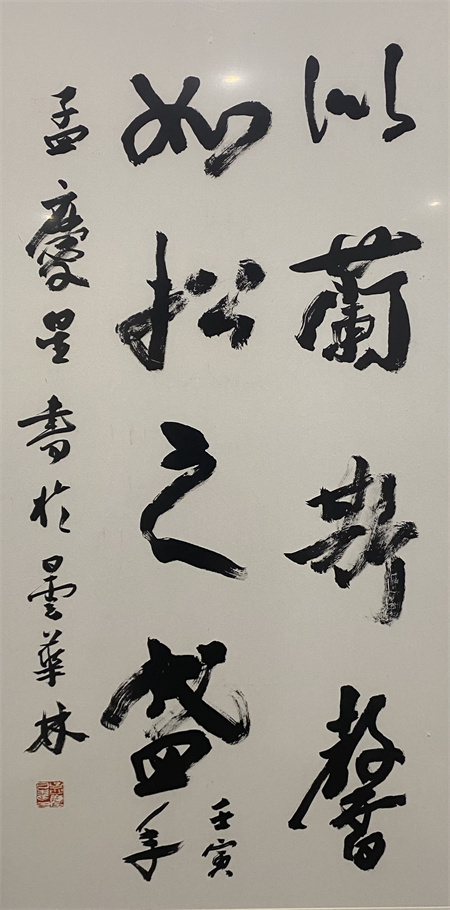 似蘭斯馨
如松之盛
壬寅
年
孟慶星書於曇華林